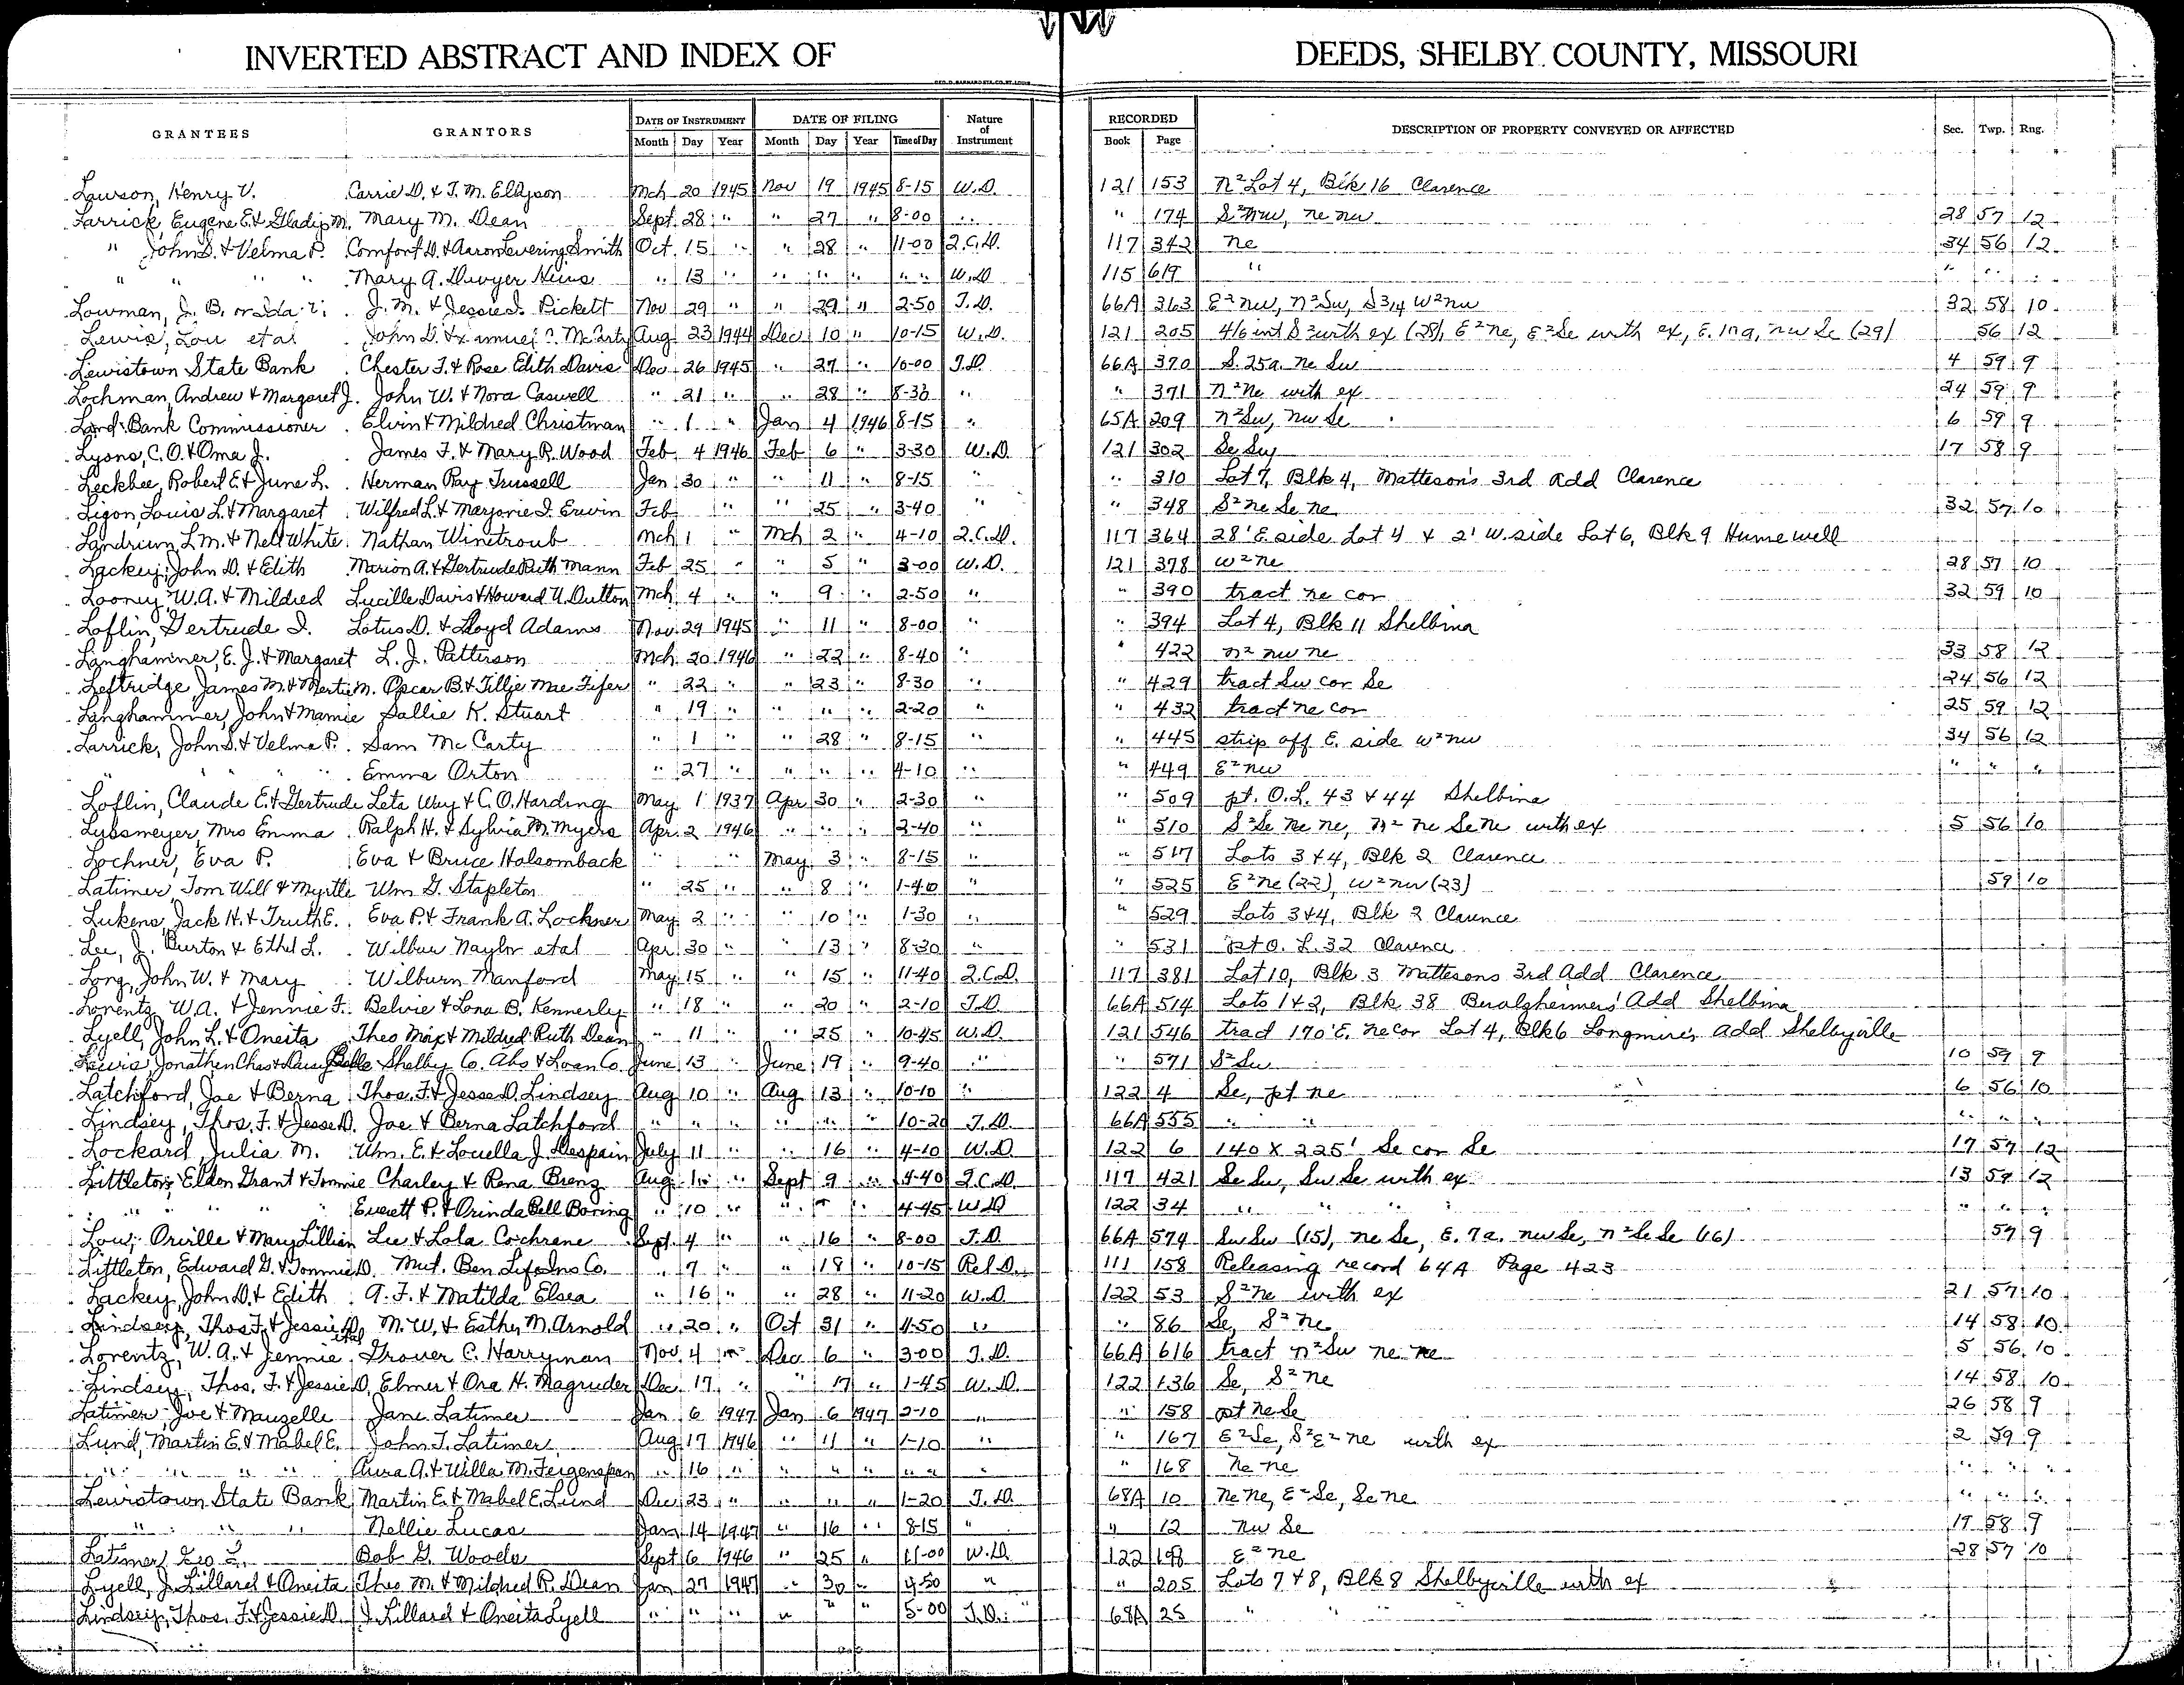 INVERTED ABSTRACT AND INDEX OF DEEDS, SHELBY COUNTY, MISSOURI
GRANTEES GRANTORS DATE OF INSTRUMENT DATE OF FILING Nature of Instrument RECORDED DESCRIPTION OF PROPERTY CONVEYED OR AFFECTED Sec. Twp. Rng.
Month Day Year Month Day Year Time of Day Book Page
Lawson, Henry V. Carrie D. & T. M. Ellyson Mch 20 1945 Nov 19 1945 8-15 W.D. 121 153 N² Lot 4, Blk 16 Clarence
Larrick Eugene E. & Gladys M. Mary M. Dean Sept 28 " " 27 " 8-00 " " 174 S² nw, ne nw 28 57 12
" John S. & Velma P. Comfort D. & Aaron Levering Smith Oct. 15 " " 28 " 11-00 Q.C.D. 117 342 ne 34 56 12
" " " " Mary A. Dwyer Heirs " 13 " " " " " " W.D. 115 619 " " " "
Lowman, J. B. or Ida J. M. & Jessie Pickett Nov 29 " " 29 " 2-50 T.D. 66A 363 E² nw, n² Sw, S 3/4 w² nw 32 58 10
Lewis, Lou et al John D. & McCarty Aug 23 1944 Dec 10 " 10-15 W.D. 121 205 4/6 int S² with ex (28), E² ne, E² Se with ex, E. 10a, nw Se (29) 56 12
Lewistown State Bank Chester T. & Rose Edith Davis Dec 26 1945 " 27 " 10-00 T.D. 66A 370 S. 25a. ne Sw 4 59 9
Lochman, Andrew & Margaret J. John W. & Nora Caswell " 21 " " 28 " 8-30 " " 371 n² ne with ex 24 59 9
Land Bank Commissioner Elvin & Mildred Christman " 1 " Jan 4 1946 8-15 " 65A 209 n² Sw, nw Se 6 59 9
Lyons, C. O. & Oma J. James F. & Mary R. Wood Feb 4 1946 Feb 6 " 3-30 W.D. 121 302 Se Sw 17 58 9
Leckbee, Robert E & June L. Herman Ray Trussell Jan 30 " " 11 " 8-15 " " 310 Lot 7, Blk 4, Matteson's 3rd Add Clarence
Ligon, Louis L. & Margaret Wilfred L. & Marjorie I. Erwin Feb " " 25 " 3-40 " 348 S² ne Se ne 32 57 10
Landrum, L. M. & Nell White Nathan Winetroub Mch 1 " Mch 2 " 4-10 Q.C.D. 117 364 28' E side Lot 4 & 2' W. side Lot 6, Blk 9 Hunnewell
Lackey, John D. & Edith Marion A. & Gertrude Ruth Mann Feb 25 " " 5 " 3-00 W.D. 121 378 w² ne 28 57 10
Looney, W. A. & Mildred Lucille Davis & Howard U. Dutton Mch. 4 " " 9 " 2-50 " " 390 tract ne cor 32 59 10
Loflin, Gertrude I. Lotus D. & Lloyd Adams Nov. 29 1945 " 11 " 8-00 " " 394 Lot 4, Blk 11 Shelbina
Langhammer, E. J. & Margaret L. J. Patterson Mch. 20 1946 " 22 " 8-40 " " 422 n² nw ne 33 58 12
Leftridge James M. & Mertie M. Oscar B. & Tillie Mae Fifer " 22 " " 23 " 8-30 " " 429 tract Sw cor Se 24 56 12
Langhammer, John & Mamie Sallie K. Stuart " 19 " " " " 2-20 " " 432 tract ne cor 25 59 12
Larrick, John S. & Velma P. Sam McCarty " 1 " " 28 " 8-15 " " 445 strip off E. side w² nw 34 56 12
" " " " Emma Orton " 27 " " " " 4-10 " " 449 E² nw " " "
Loflin, Claude E. & Gertrude Leta Way & C. O. Harding May 1 1937 Apr 30 " 2-30 " " 509 pt. O.L. 43 & 44 Shelbina
Lubsmeyer, Mrs Emma Ralph H. & Sylvia M. Myers Apr. 2 1946 " " " 2-40 " " 510 S² Se ne ne, n² ne Se ne with ex 5 56 10
Lochner, Eva P. Eva & Bruce Halsomback " " May 3 " 8-15 " " 517 Lots 3 & 4, Blk 2 Clarence
Latimer, Tom Will & Myrtle Wm G. Stapleton " 25 " " 8 " 1-40 " " 525 E² ne (22), w² nw (23) 59 10
Lukens, Jack H. & Truth E. Eva P. & Frank A. Lochner May 2 " " 10 " 1-30 " " 529 Lots 3 & 4, Blk 2 Clarence
Lee, J. Burton & Ethel L. Wilbur Naylor et al Apr. 30 " " 13 " 8-30 " " 531 pt O. L. 32 Clarence
Long, John W. & Mary Wilburn Manford May 15 " " 15 " 11-40 Q.C.D. 117 381 Lot 10, Blk 3 Mattesons 3rd Add Clarence
Lorentz W. A. & Jennie F. Belvie & Lona B. Kennerly " 18 " " 20 " 2-10 T.D. 66A 514 Lots 1 & 2, Blk 38 Add Shelbina
Lyell, John L. & Oneita Theo Max & Mildred Ruth Dean " 11 " " 25 " 10-45 W.D. 121 546 tract 170' E. ne cor Lot 4, Blk 6 Longmire's add Shelbyville
Lewis Jonathan Chas & Daisy Belle Shelby Co. Abs & Loan Co. June 13 " June 19 " 9-40 " " 571 S² Sw 10 59 9
Latchford, Joe & Berna Thos. F. & Jesse D. Lindsey Aug 10 " Aug 13 " 10-10 " 122 4 Se, pt ne 6 56 10
Lindsey, Thos. F. & Jesse D. Joe & Berna Latchford " " " " " " 10-20 T.D. 66A 555 " " " " "
Lockard, Julia M. Wm. E. & Louella J. Despain July 11 " " 16 " 4-10 W.D. 122 6 140 X 225' Se cor Se 17 57 12
Littleton, Eldon Grant & Tommie Charley & Rena Brenz Aug. " Sept 9 " 4-40 Q.C.D. 117 421 Se Sw, Sw Se with ex 13 59 12
" " " " Everett P. & Orinda Bell Boring " 10 " " " " 4-45 W.D 122 34 " " " " " "
Low, Orville & Mary Lillian Lee & Lola Cochrane Sept. 4 " " 16 " 8-00 T.D. 66A 574 Sw Sw (15), ne Se, E. 7a. nw Se, n² Se Se (16) 59 9
Littleton, Edward G. & Tommie D. Mut. Ben Life Ins Co. " 7 " " 18 " 10-15 Rel D. 111 158 Releasing record 64A Page 423
Lackey, John D. & Edith A. F. & Matilda Elsea " 16 " " 28 " 11-20 W.D. 122 53 S² ne with ex 21 57 10
Lindsey, Thos F. & Jessie D. et al M. W. & Esther M. Arnold " 20 " Oct 31 " 4-50 " " 86 Se, S² ne 14 58 10
Lorentz, W. A. & Jennie Grover C. Harryman Nov. 4 " Dec 6 " 3-00 T.D. 66A 616 tract n² Sw ne ne 5 56 10
Lindsey, Thos. F. & Jessie D. Elmer & Ora H. Magruder Dec. 17 " " 17 " 1-45 W.D. 122 136 Se, S² ne 14 58 10
Latimer, Joe & Mauzelle Jane Latimer Jan 6 1947 Jan 6 1947 2-10 " " 158 pt ne Se 26 58 9
Lund, Martin E. & Mabel E. John T. Latimer Aug 17 1946 " 11 " 1-10 " " 167 E² Se, S² E² ne with ex 2 59 9
" " " " Aura A. & Willa M. Feigenspan " 16 " " " " " " " " 168 ne ne " " "
Lewistown State Bank Martin E. & Mabel E. Lund Dec 23 " " " " 1-20 T.D. 68A 10 ne ne, E² Se, Se ne " " "
" " " Nellie Lucas Jan 14 1947 " 16 " 8-15 " " 12 nw Se 17 58 9
Latimer, Geo Bob G. Woods Sept 6 1946 " 25 " 11-00 W.D. 122 198 E² ne 28 57 10
Lyell, J. Lillard & Oneita Theo M. & Mildred R. Dean Jan 27 1947 " 30 " 4-50 " " 205 Lots 7 & 8, Blk 8 Shelbyville with ex
Lindsey, Thos. F. & Jessie D. J. Lillard & Oneita Lyell " " " " " " 5-00 T.D. 68A 25 " "